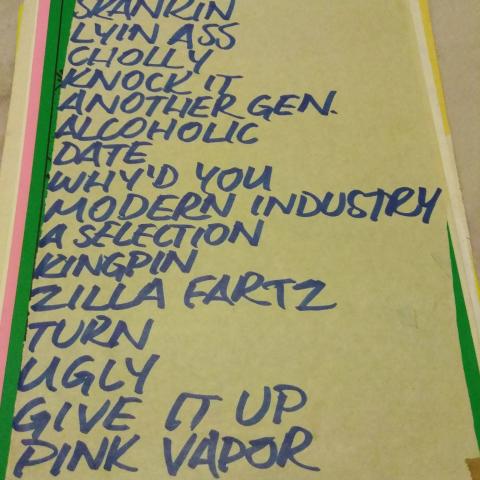 SKANKIN
LYIN ASS
CHOLLY
KNOCK IT
ANOTHER GEN.
ALCOHOLIC
DATE
WHY'D YOU
MODERN INDUSTRY
A SELECTION
KINGPIN
ZILLA FARTZ
TURN
UGLY
GIVE IT UP
PINK VAPOR